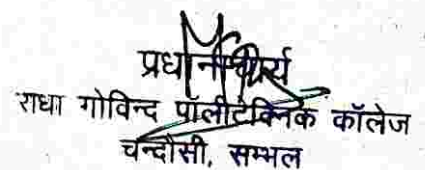 प्रधानाचार्य
राधा गोविन्द पॉलीटेक्निक कॉलेज
चन्दौसी, सम्भल